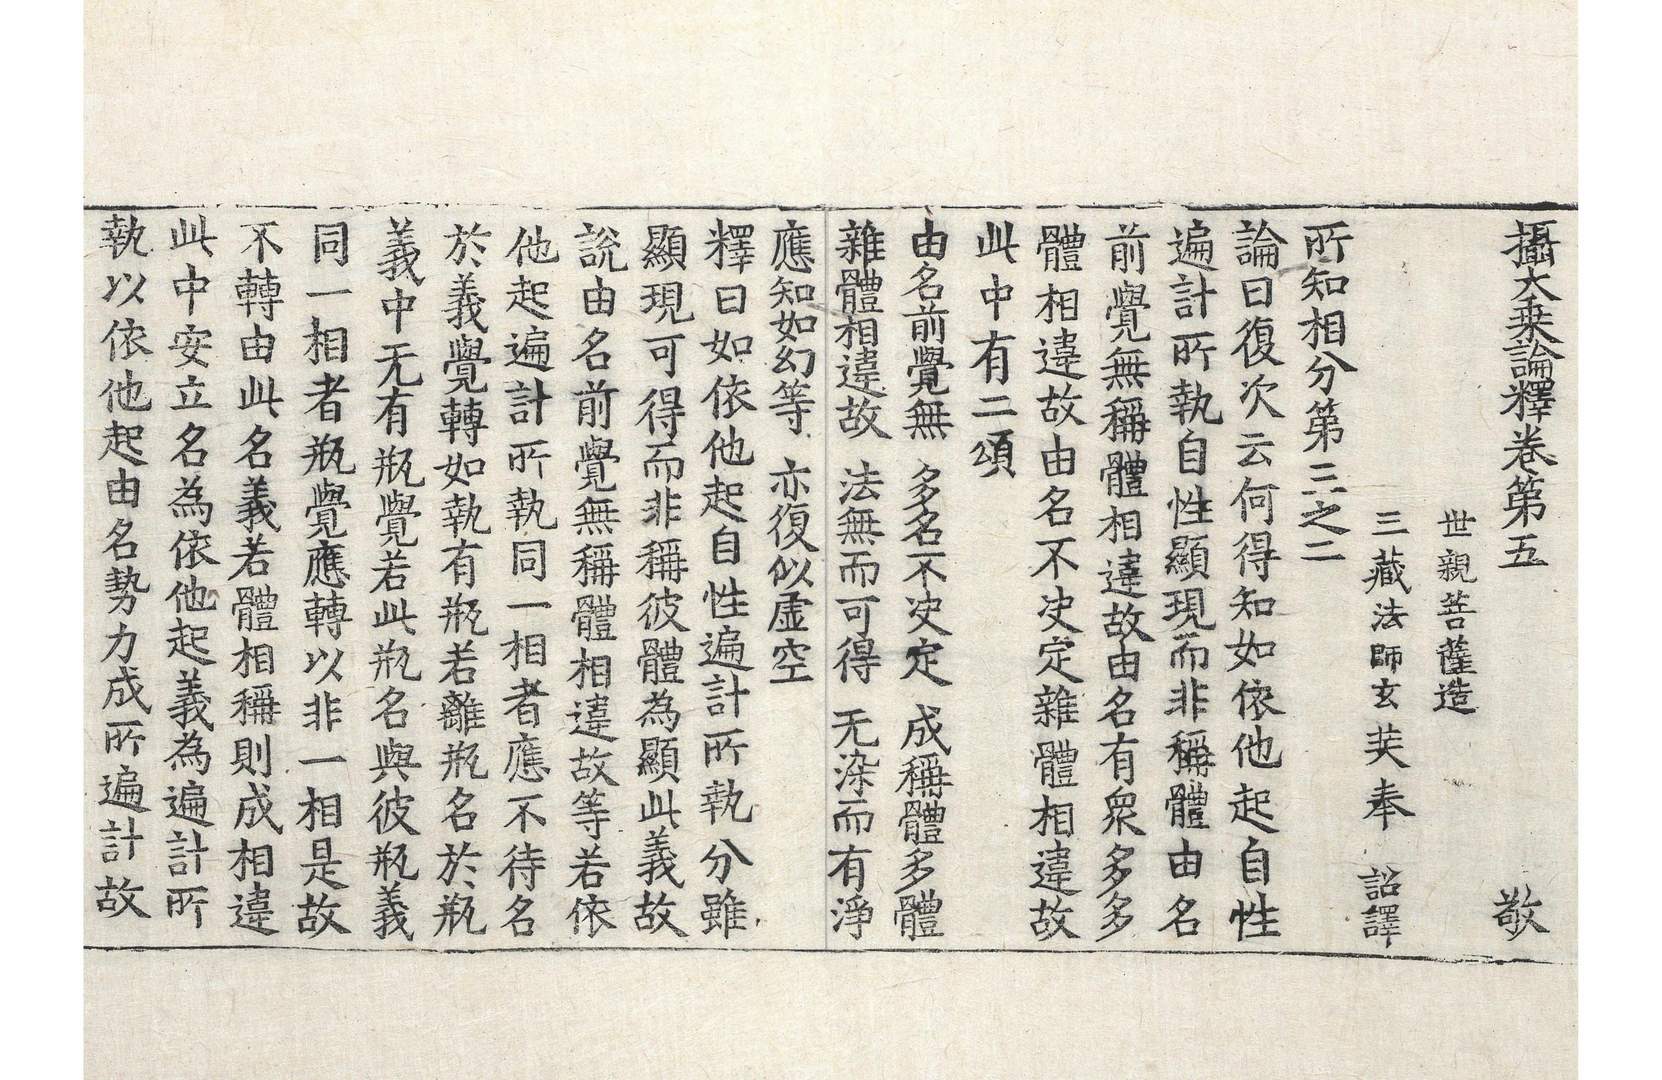 攝大乗論釋卷第五 敬
世親菩薩造
三藏法師玄奘奉 詔譯
所知相分第三之二
論曰復次云何得知如依他起自性
遍計所執自性顯現而非稱體由名
前覺無稱體相違故由名有衆多多
體相違故由名不決定雜體相違故
此中有二頌
由名前覺無 多名不决定 成稱體多體
雜體相違故 法無而可得 无染而有淨
應知如幻等 亦復似虛空
釋曰如依他起自性遍計所執分雖
顯現可得而非稱彼體為顯此義故
說由名前覺無稱體相違故等若依
他起遍計所執同一相者應不待名
於義覺轉如執有瓶若離瓶名於瓶
義中无有瓶覺若此瓶名與彼瓶義
同一相者瓶覺應轉以非一相是故
不轉由此名義若體相稱則成相違
此中安立名為依他起義為遍計所
執以依他起由名勢力成所遍計故